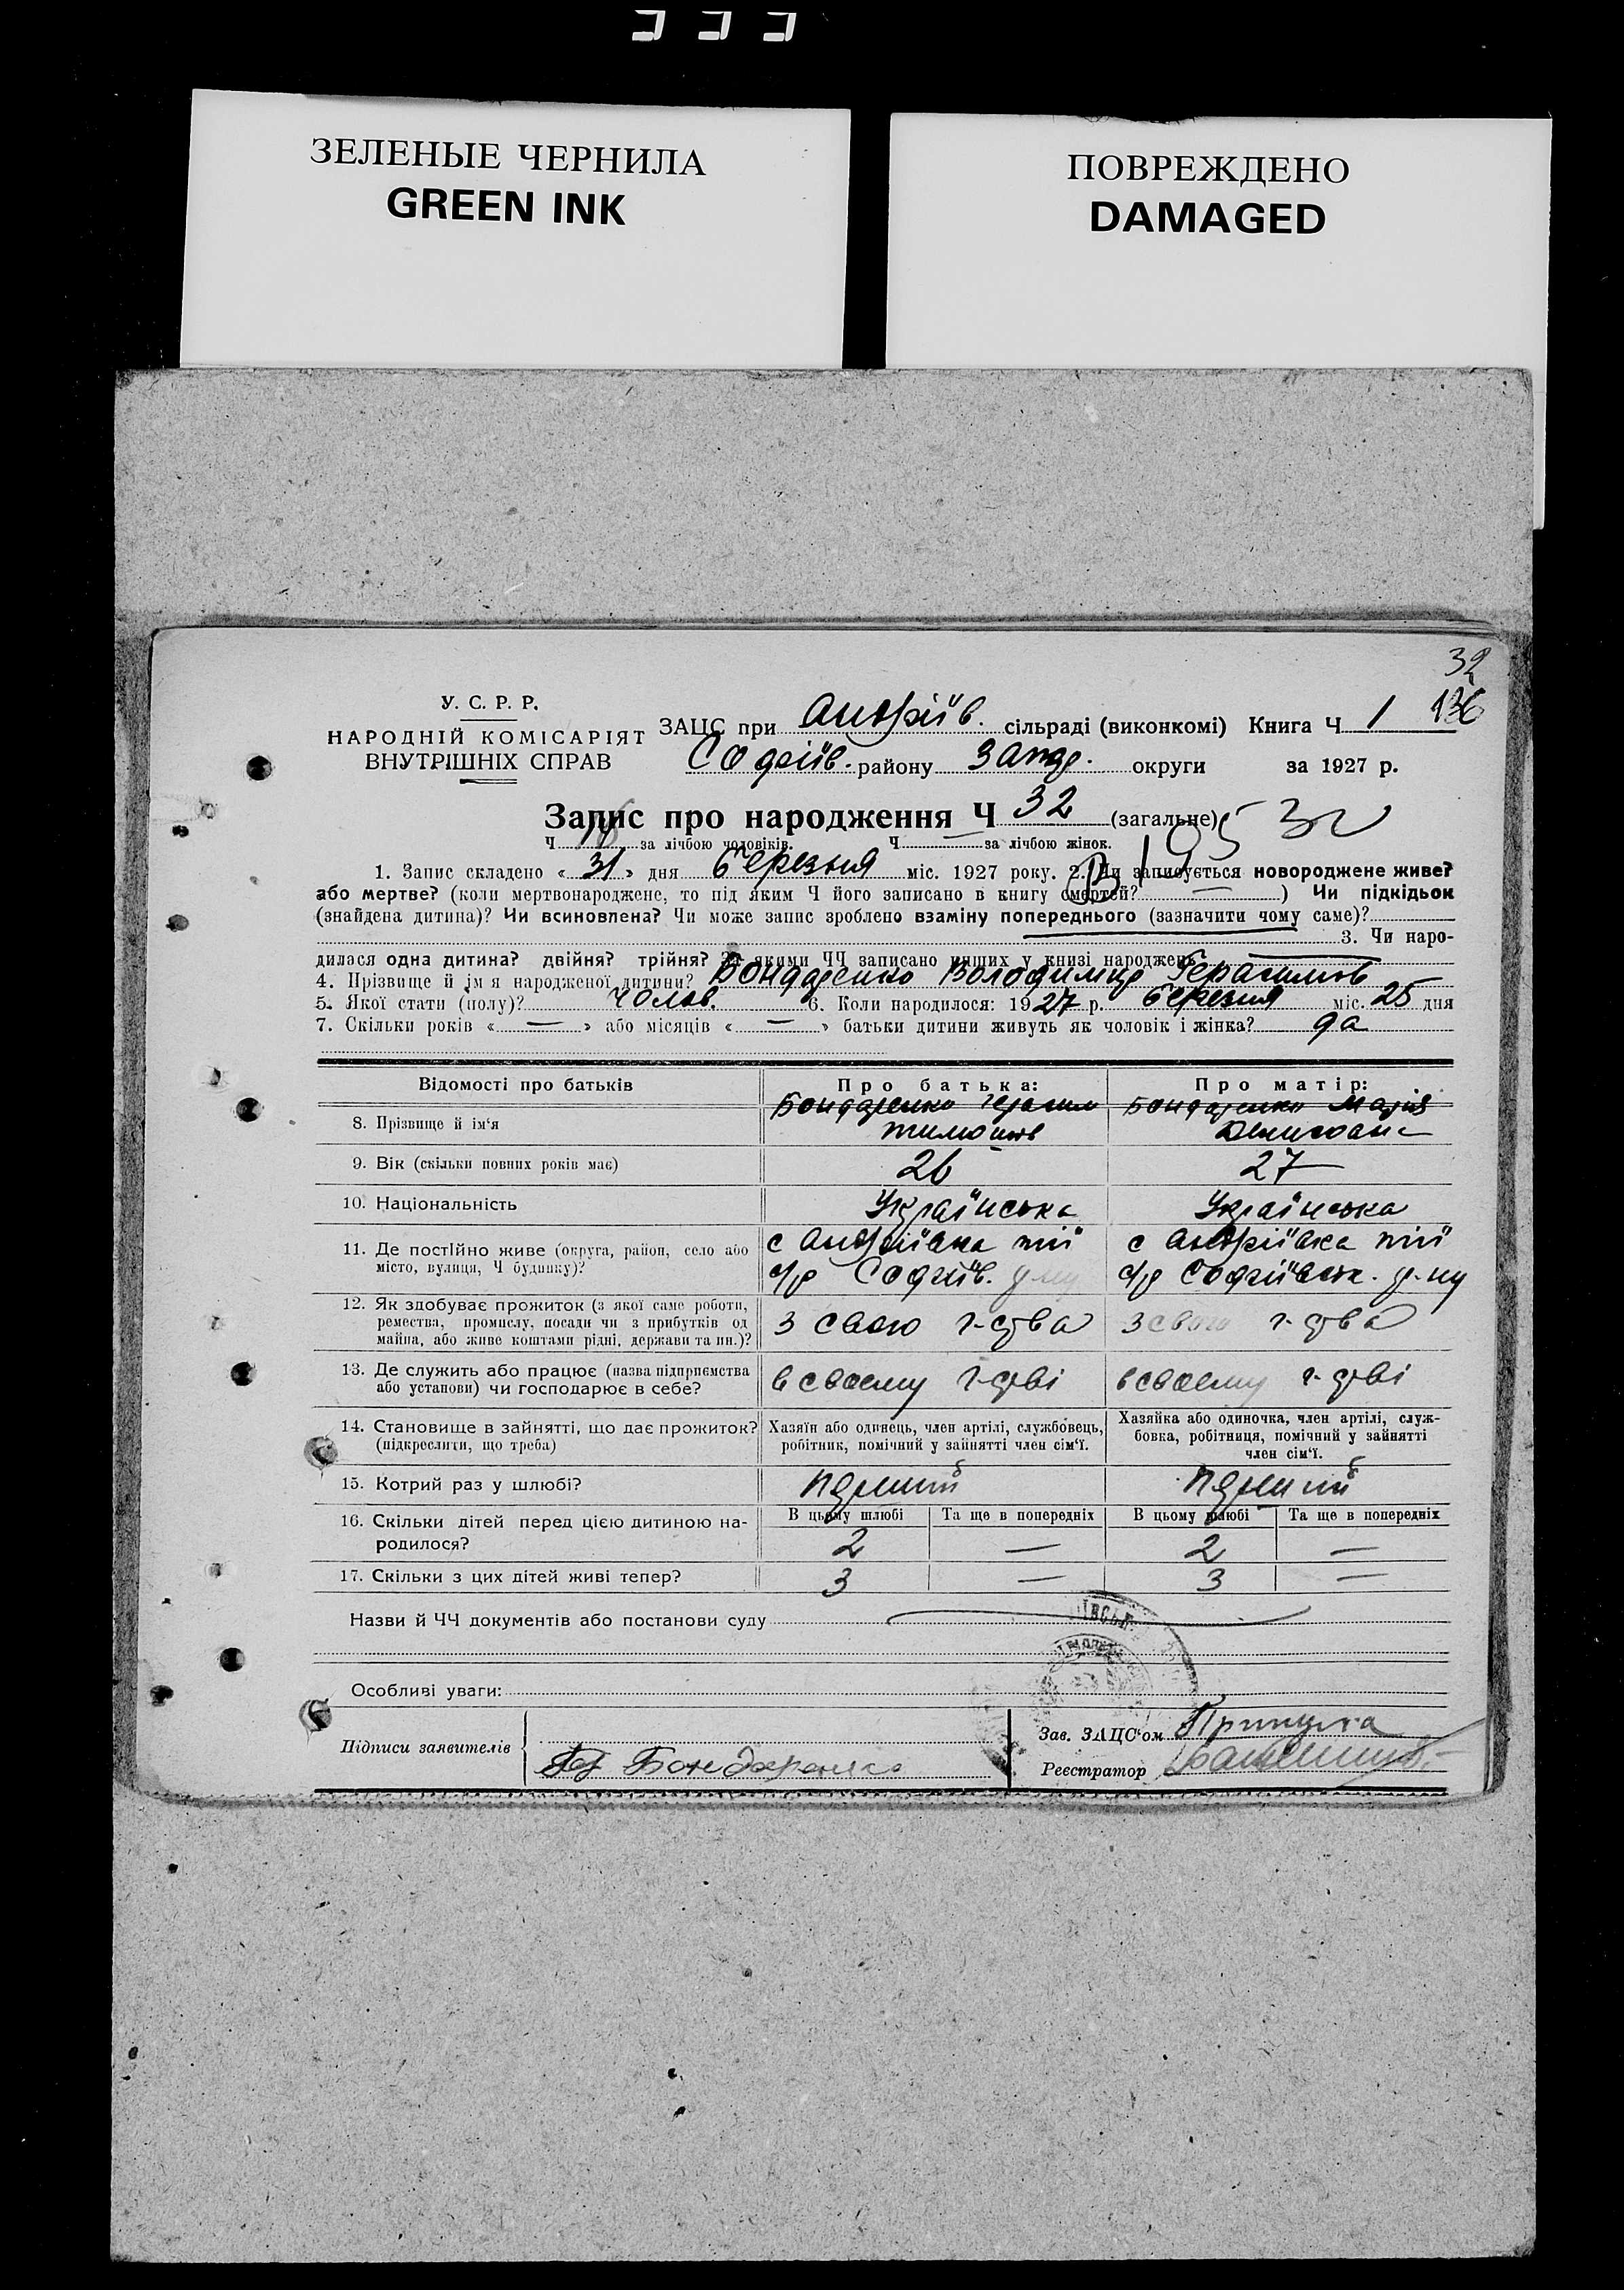 ЗЕЛЕНЫЕ ЧЕРНИЛА
GREEN INK
ПОВРЕЖДЕНО
DAMAGED
32
136
У. С. Р. Р.
НАРОДНІЙ КОМІСАРІЯТ
ВНУТРІШНІХ СПРАВ
ЗАЦС при Андріїв. сільраді (виконкомі) Книга Ч 1
Софіїв. району Запор. округи за 1927 р.
Запис про народження Ч 32 (загальне)
Ч 16 за лічбою чоловіків. Ч — за лічбою жінок.
1. Запис складено « 31 » дня березня міс. 1927 року. 2. Чи записується новороджене живе?
або мертве? (коли мертвонароджене, то під яким Ч його записано в книгу смертей? — ) Чи підкідьок
(знайдена дитина)? Чи всиновлена? Чи може запис зроблено взаміну попереднього (зазначити чому саме)?
3. Чи наро-
дилася одна дитина? двійня? трійня? За якими ЧЧ записано инших у книзі народжень
4. Прізвище й ім'я народженої дитини? Бондаренко Володимир Герасимов
5. Якої стати (полу)? Чолов. 6. Коли народилося: 1927 р. березня міс. 25 дня
7. Скільки років « — » або місяців « — » батьки дитини живуть як чоловік і жінка? да
Відомості про батьків Про батька: Про матір:
8. Прізвище й ім'я Бондаренко Герасим Бондаренко Марія
Тимофіїв Денисовна
9. Вік (скільки повних років має) 26 27
10. Національність Українська Українська
11. Де постійно живе (округа, район, село або с Андріївка тії с Андріївка тії
місто, вулиця, Ч будинку)? с/р Софіїв. р-ну с/р Софіївськ. р-ну
12. Як здобуває прожиток (з якої саме роботи,
ремества, промислу, посади чи з прибутків од З свого г-дтва З свого г-дтва
майна, або живе коштами рідні, держави та ин.)?
13. Де служить або працює (назва підприємства
або установи) чи господарює в себе? в своєму г-дтві в своєму г-дтві
14. Становище в зайнятті, що дає прожиток? Хазяїн або одинець, член артілі, службовець, Хазяйка або одиночка, член артілі, служ-
(підкреслити, що треба) робітник, помічний у зайнятті член сім'ї. бовка, робітниця, помічний у зайнятті
член сім'ї.
15. Котрий раз у шлюбі? Перший Перший
16. Скільки дітей перед цією дитиною на- В цьому шлюбі Та ще в попередніх В цьому шлюбі Та ще в попередніх
родилося? 2 — 2 —
17. Скільки з цих дітей живі тепер? 3 — 3 —
Назви й ЧЧ документів або постанови суду
Особливі уваги:
Підписи заявителів Бондаренко
Зав. ЗАЦС'ом
Реєстратор